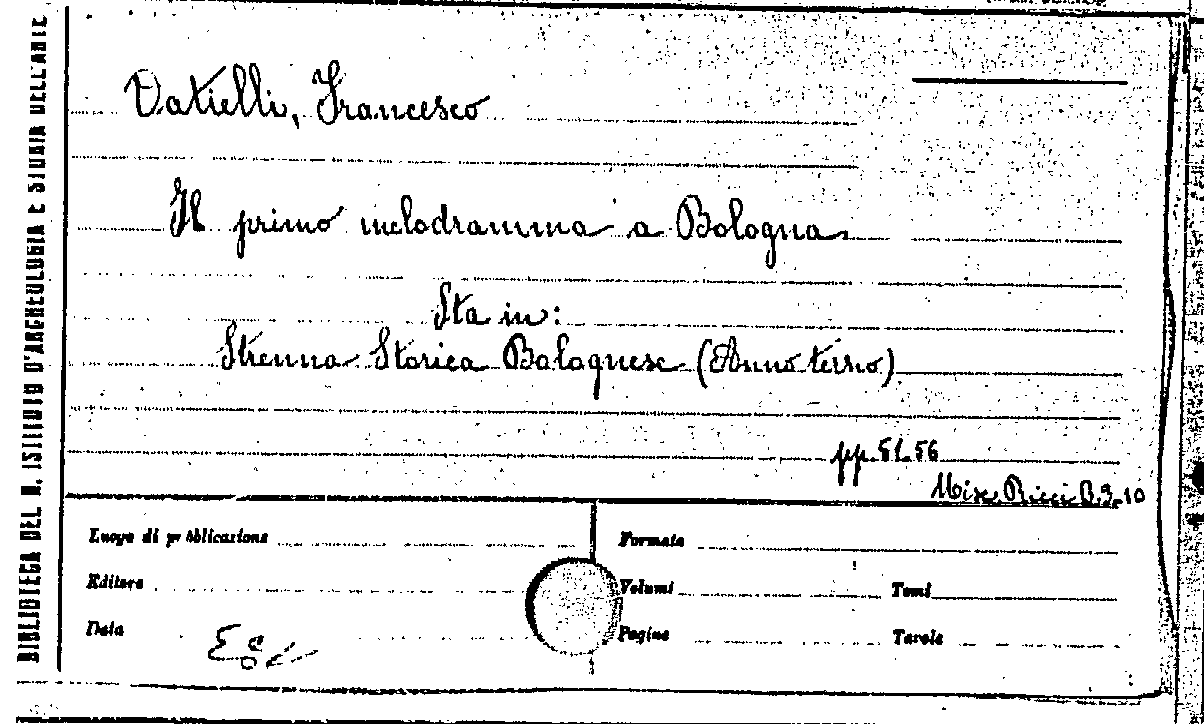 BIBLIOTECA DEL R. ISTITUTO D'ARCHEOLOGIA E STORIA DELL'ARTE
Vatielli, Francesco
Il primo melodramma a Bologna
Sta in:
Strenna Storica Bolognese (Anno terzo)
pp. 51-56
Misc. Ricci B.3-10
Luogo di pubblicazione
Formato
Editore
Volumi
Tomi
Data
Pagine
Tavole